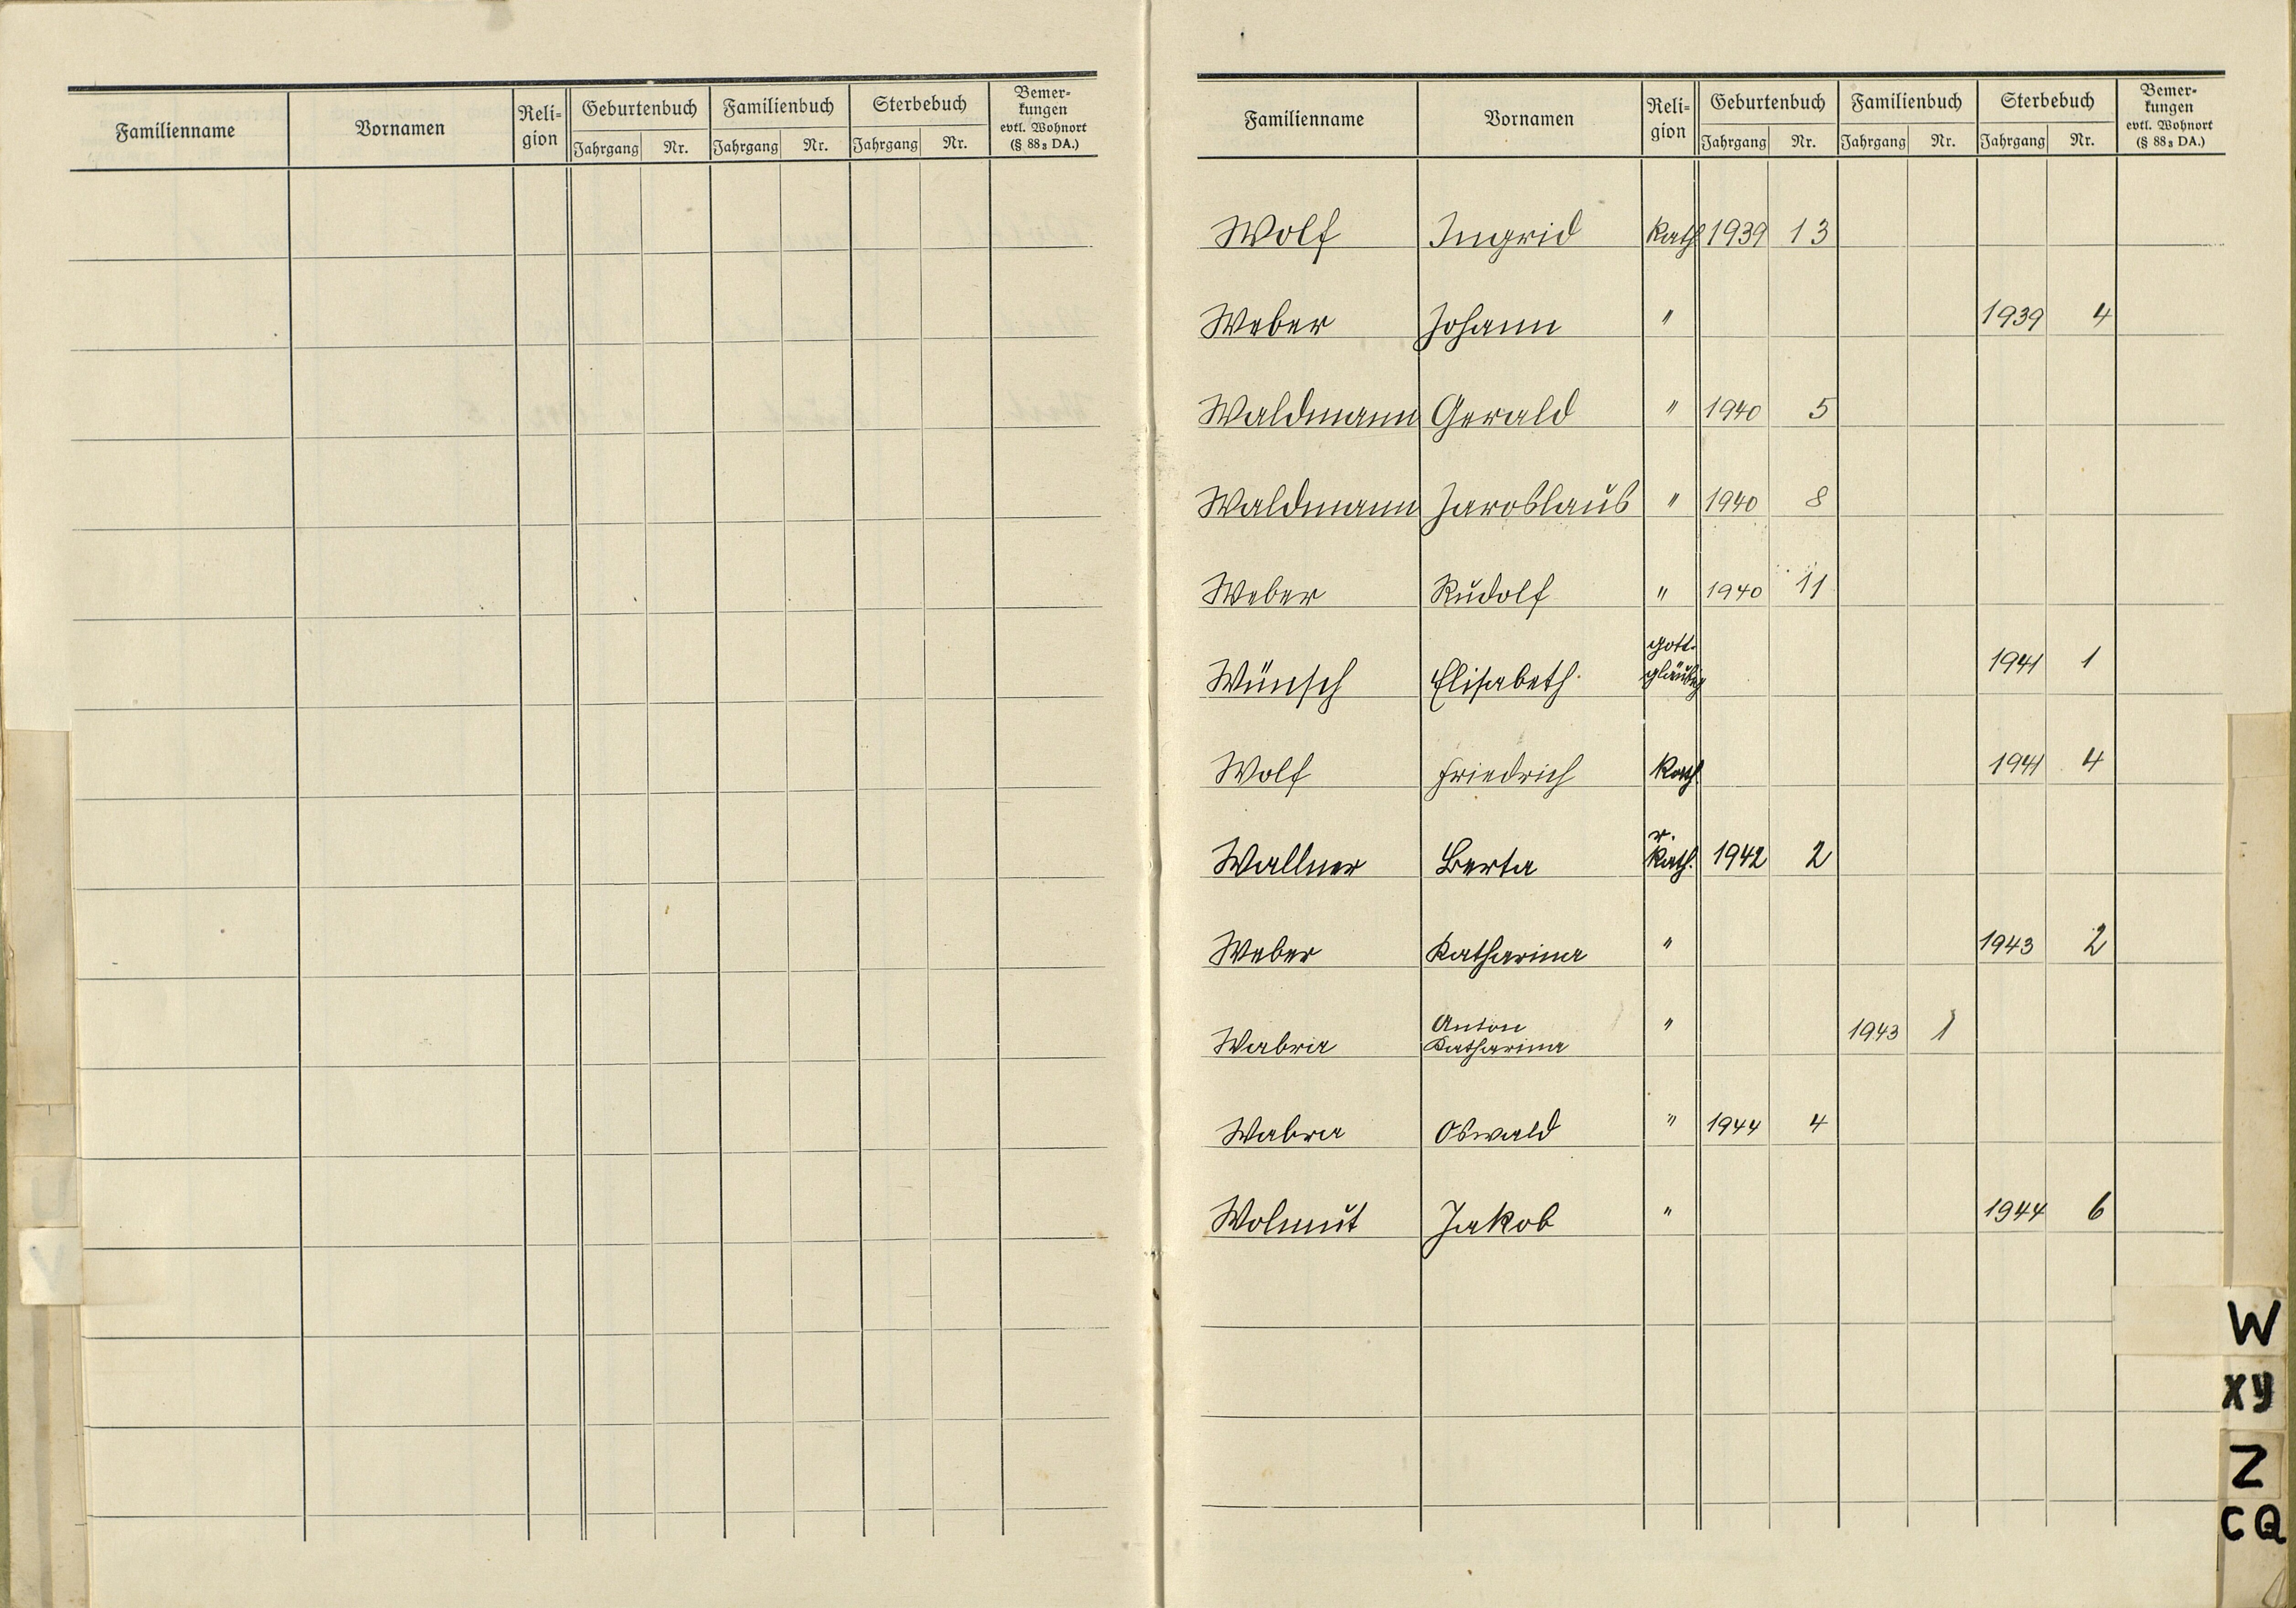 Familienname Vornamen Reli-gion Geburtenbuch Familienbuch Sterbebuch Bemer-kungen evtl. Wohnort (§ 88₃ DA.)
Jahrgang Nr. Jahrgang Nr. Jahrgang Nr.
Familienname Vornamen Reli-gion Geburtenbuch Familienbuch Sterbebuch Bemer-kungen evtl. Wohnort (§ 88₃ DA.)
Jahrgang Nr. Jahrgang Nr. Jahrgang Nr.
Wolf Ingrid Kath 1939 13
Weber Johann " 1939 4
Waldmann Gerald " 1940 5
Waldmann Jaroslaus " 1940 8
Weber Rudolf " 1940 11
Wünsch Elisabeth gott-gläubig 1941 1
Wolf Friedrich Kath 1941 4
Wallner Berta r. Kath. 1942 2
Weber Katharina " 1943 2
Wabra Anton Katharina " 1943 1
Wabra Oswald " 1944 4
Wolmut Jakob " 1944 6
U
V
W
XY
Z
CQ